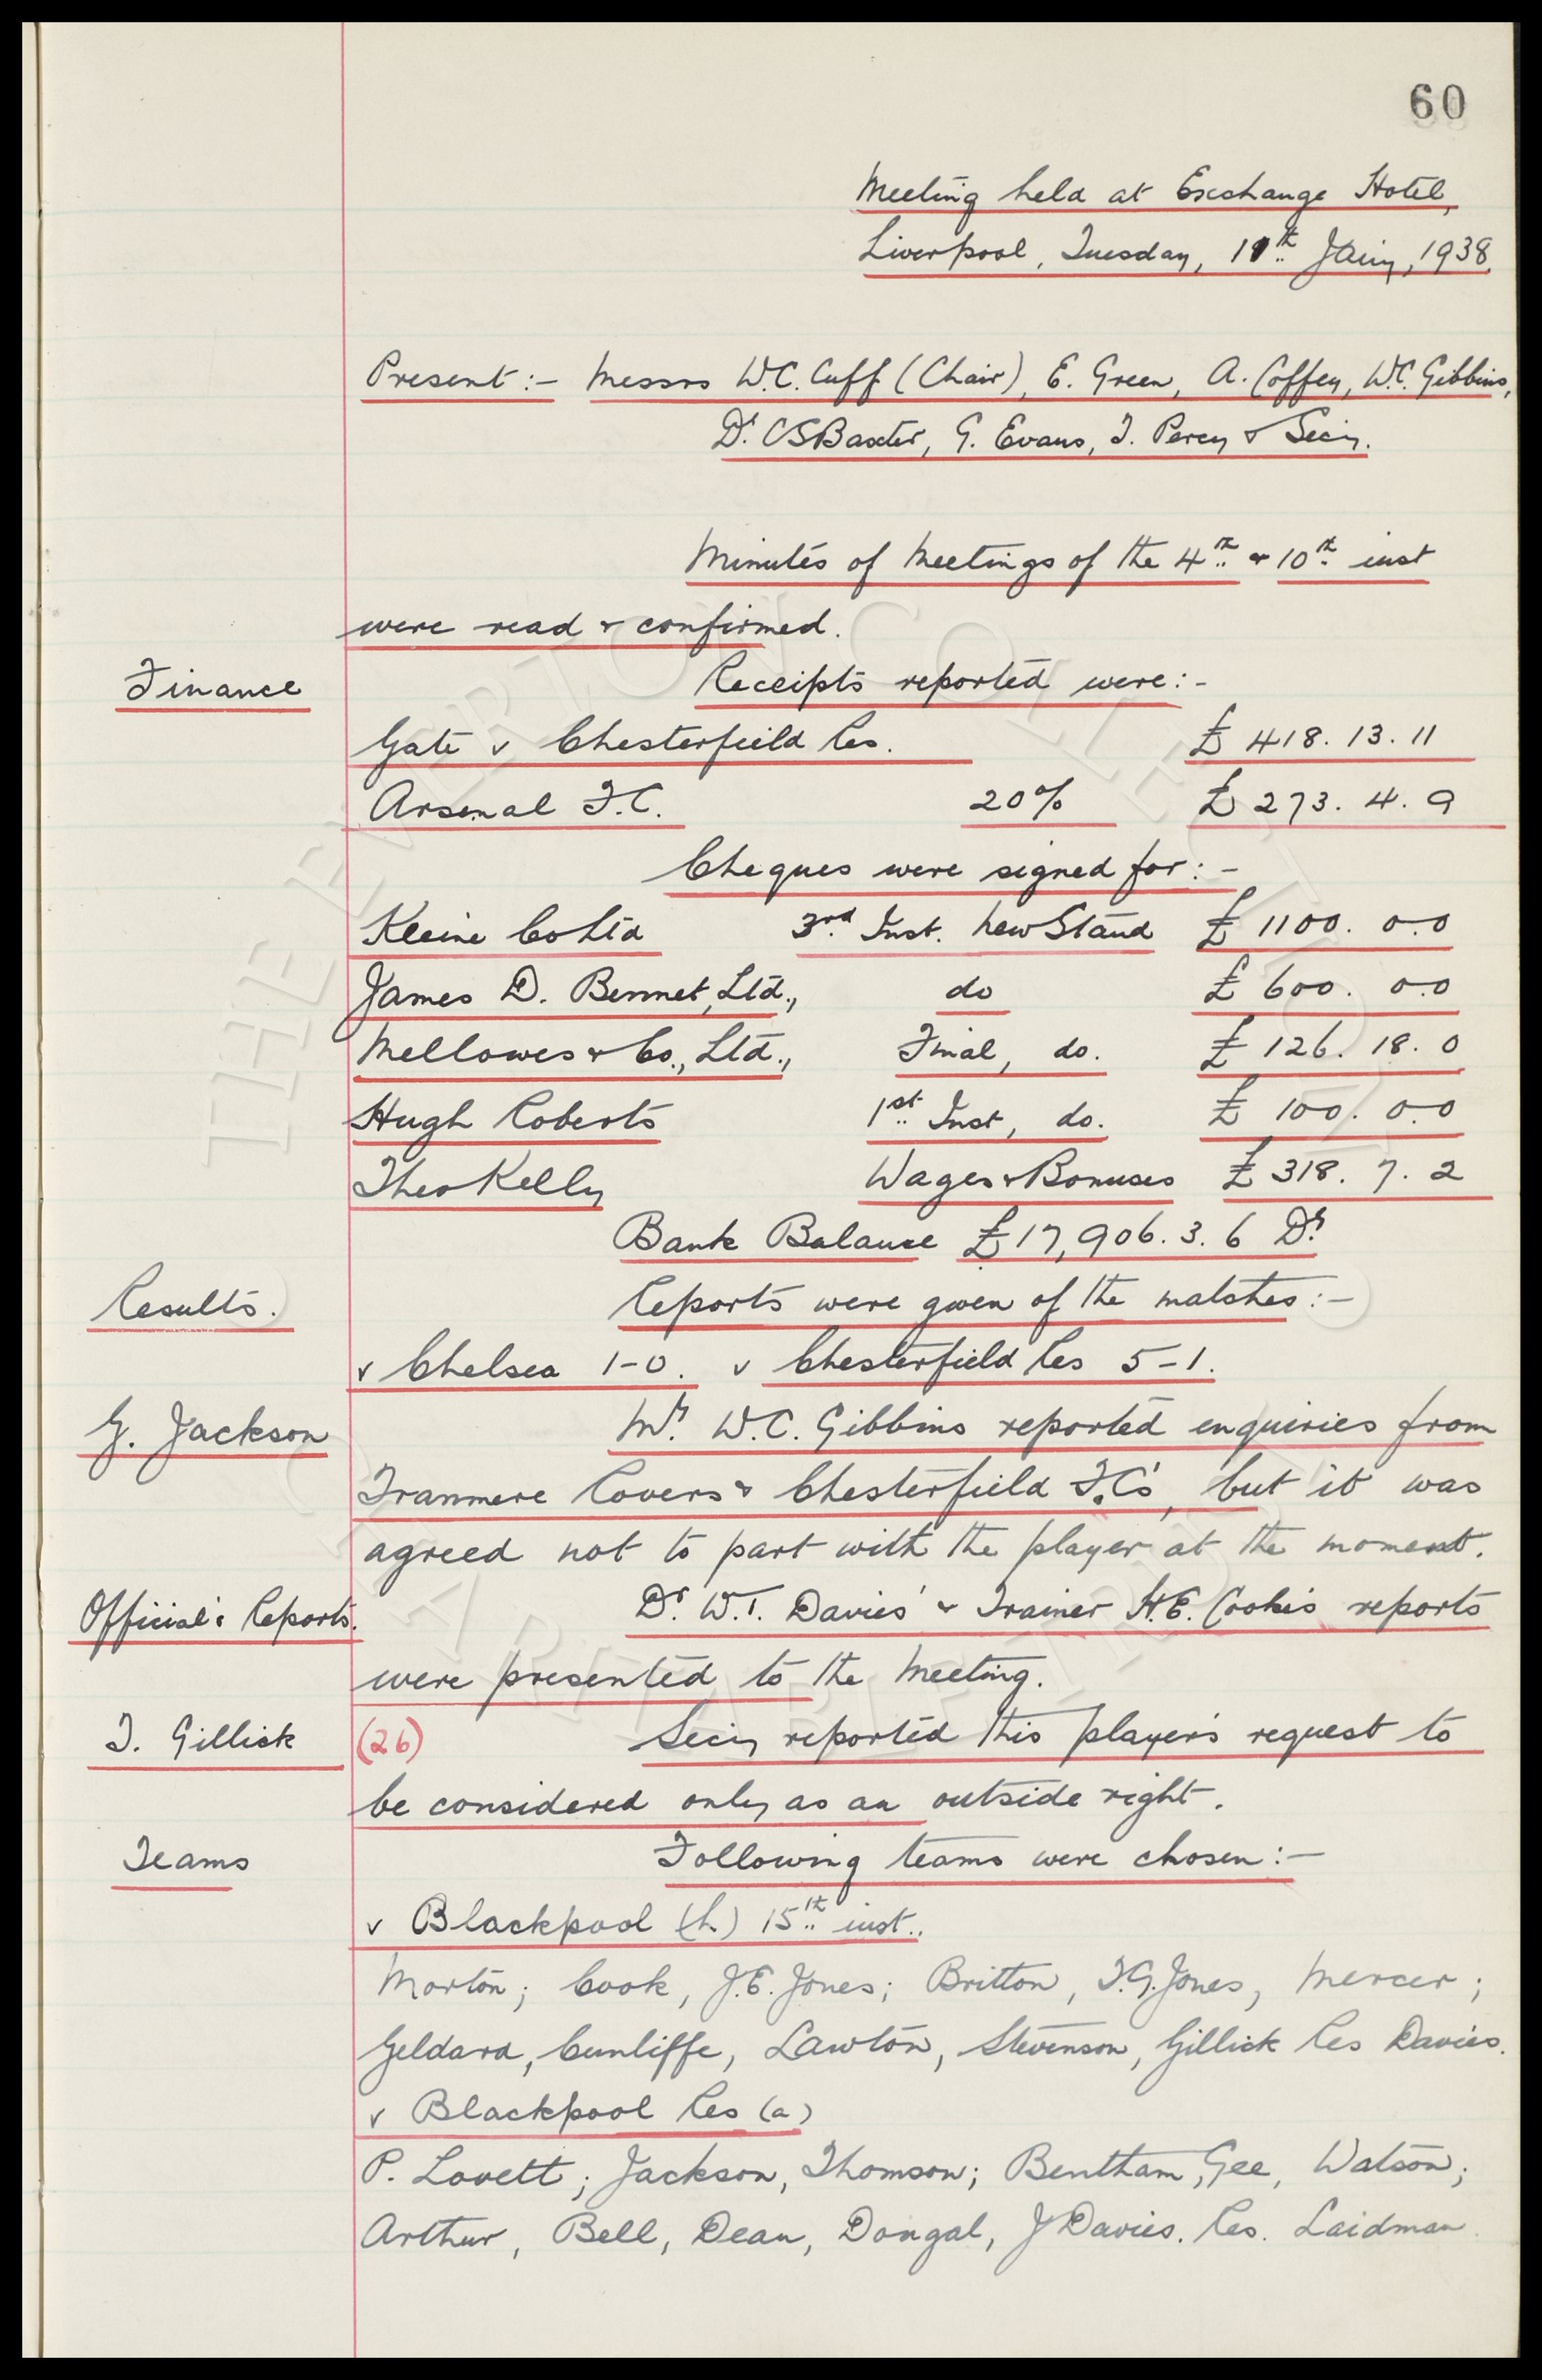 60
Meeting held at Exchange Hotel,
Liverpool, Tuesday, 11th Jany, 1938.
Present:- Messrs W.C. Cuff (Chair), E. Green, A. Coffey, W.C. Gibbins,
Dr. CSBaxter, G. Evans, T. Percy & Secy.
Minutes of Meetings of the 4th & 10th inst
were read & confirmed.
Finance
Receipts reported were:-
Gate v Chesterfield Res. £ 418. 13. 11
Arsenal F.C. 20% £ 273. 4. 9
Cheques were signed for:-
Kleine Co Ltd 3rd Inst. New Stand £ 1100. 0.0
James D. Bennet, Ltd., do £ 600. 0.0
Mellowes & Co., Ltd., Final, do. £ 126. 18. 0
Hugh Roberts 1st Inst, do. £ 100. 0.0
Theo Kelly Wages & Bonuses £ 318. 7. 2
Bank Balance £17,906. 3. 6 Dr
Results.
Reports were given of the matches:-
v Chelsea 1-0. v Chesterfield Res 5-1.
G. Jackson
Mr. W.C. Gibbins reported enquiries from
Tranmere Rovers & Chesterfield F.C's, but it was
agreed not to part with the player at the moment.
Official's Reports.
Dr. W.T. Davies' & Trainer H.E. Cooke's reports
were presented to the Meeting.
T. Gillick (26)
Secy reported this player's request to
be considered only as an outside right.
Teams
Following teams were chosen:-
v Blackpool (h) 15th inst..
Morton; Cook, J.E. Jones; Britton, T.G. Jones, Mercer;
Geldard, Cunliffe, Lawton, Stevenson, Gillick Res Davies.
v Blackpool Res (a)
P. Lovett; Jackson, Thomson; Bentham, Gee, Watson;
Arthur, Bell, Dean, Dougal, J Davies. Res. Laidman